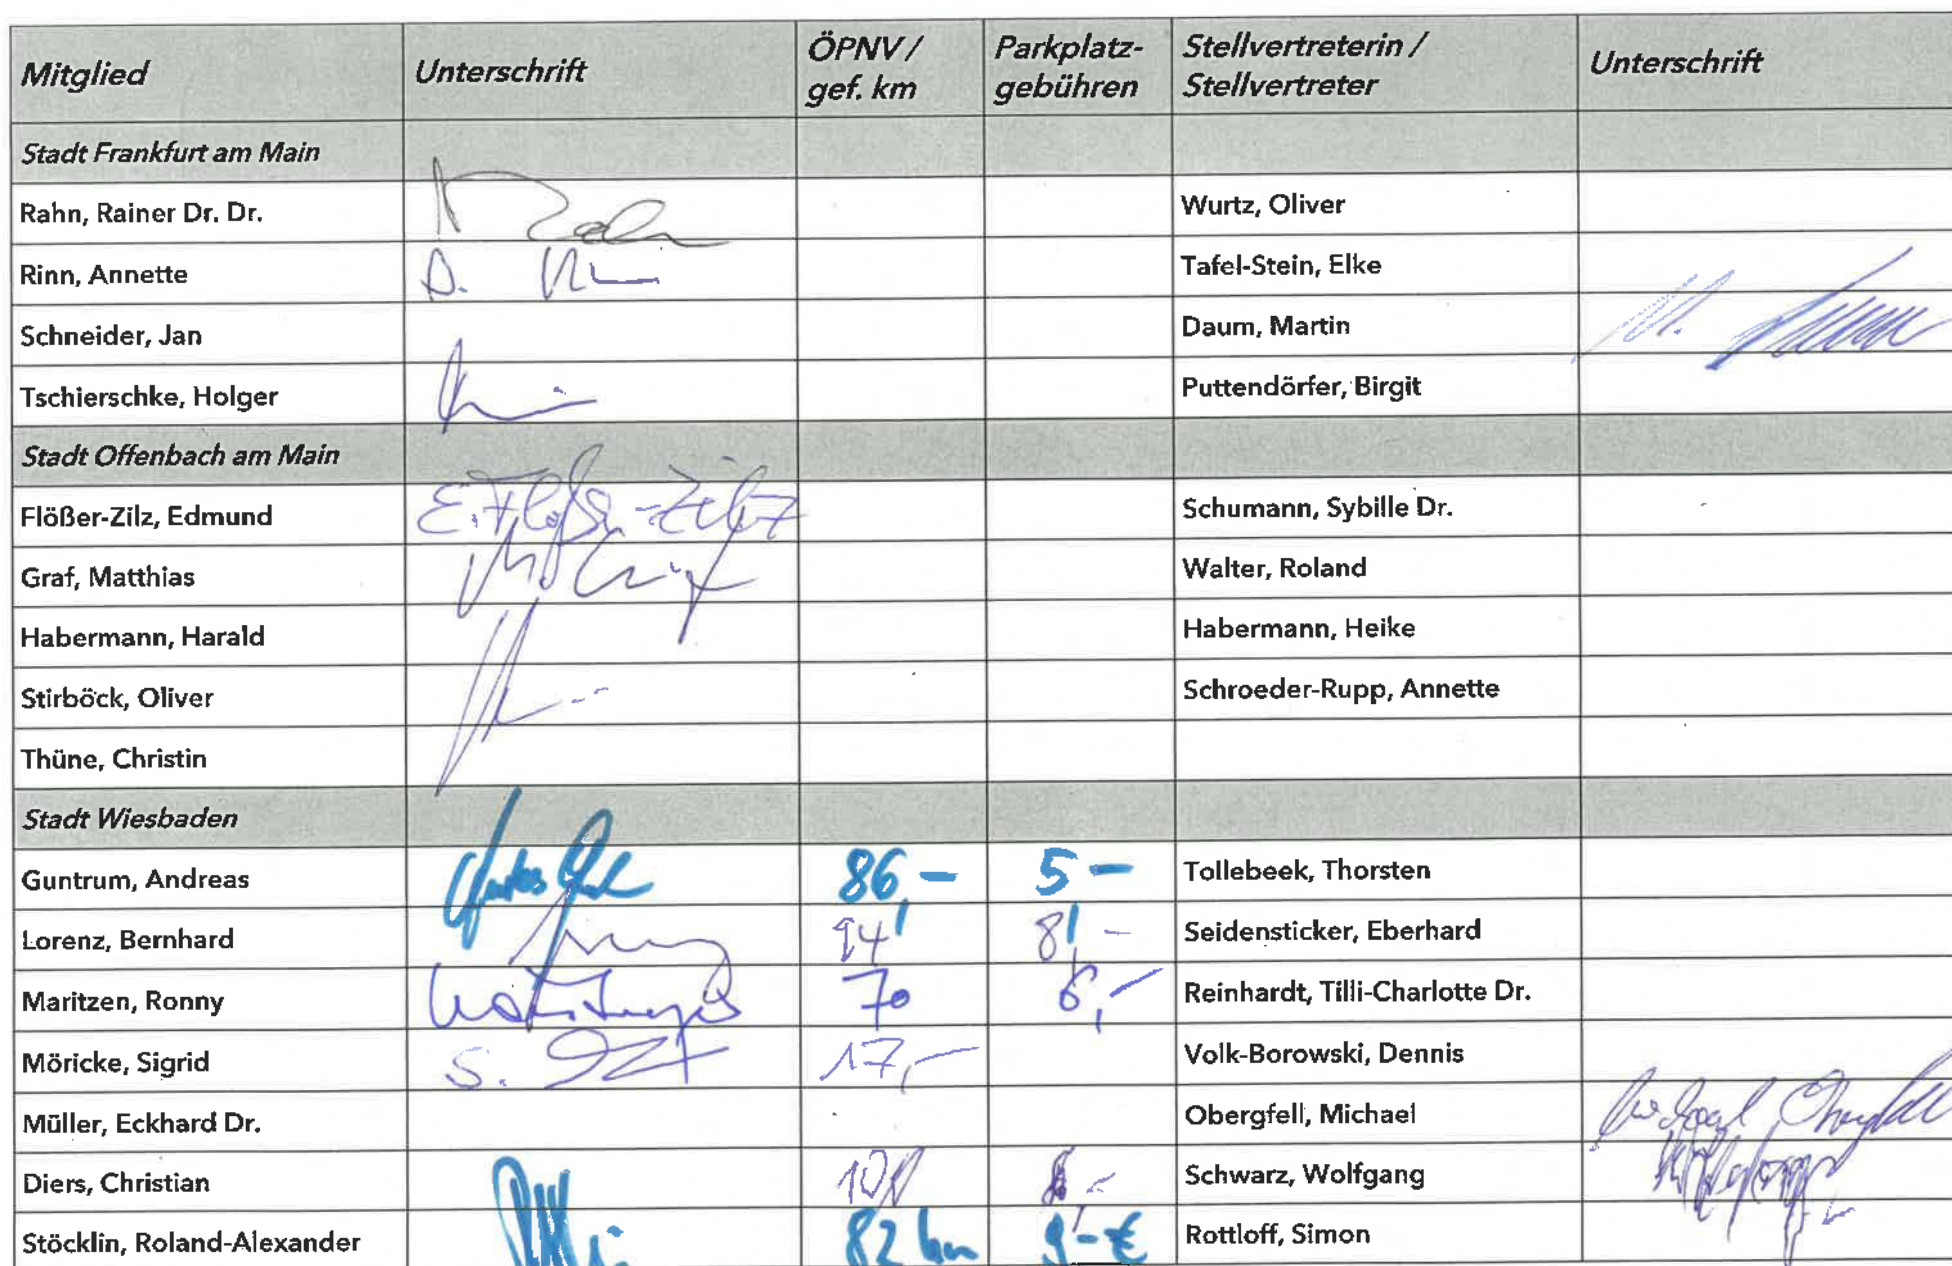 Mitglied Unterschrift ÖPNV / gef. km Parkplatz-gebühren Stellvertreterin / Stellvertreter Unterschrift
Stadt Frankfurt am Main
Rahn, Rainer Dr. Dr. Wurtz, Oliver
Rinn, Annette Tafel-Stein, Elke
Schneider, Jan Daum, Martin
Tschierschke, Holger Puttendörfer, Birgit
Stadt Offenbach am Main
Flößer-Zilz, Edmund E. Flößer-Zilz Schumann, Sybille Dr.
Graf, Matthias Walter, Roland
Habermann, Harald Habermann, Heike
Stirböck, Oliver Schroeder-Rupp, Annette
Thüne, Christin
Stadt Wiesbaden
Guntrum, Andreas 86,- 5,- Tollebeek, Thorsten
Lorenz, Bernhard 94 8,- Seidensticker, Eberhard
Maritzen, Ronny 70 6,- Reinhardt, Tilli-Charlotte Dr.
Möricke, Sigrid S. 17,- Volk-Borowski, Dennis
Müller, Eckhard Dr. Obergfell, Michael
Diers, Christian Schwarz, Wolfgang
Stöcklin, Roland-Alexander 82 km 9,-€ Rottloff, Simon